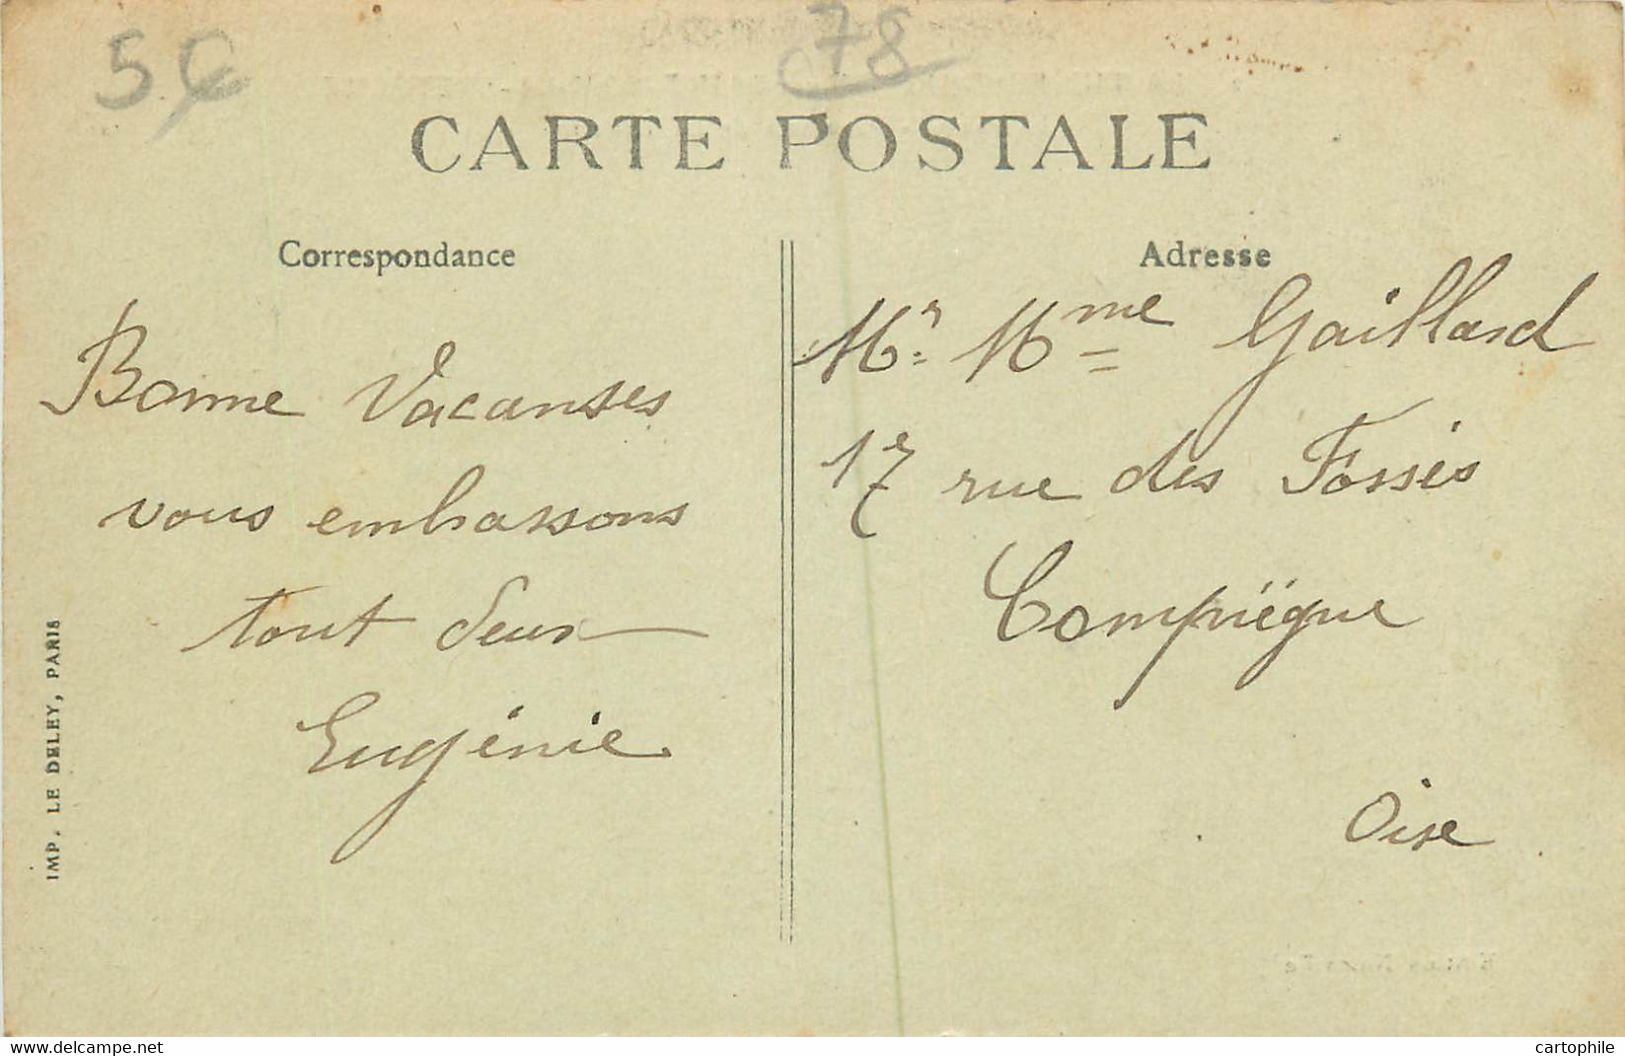 5€
78
CARTE POSTALE
Correspondance
Bonne Vacanses
vous embrassons
tout deux
Eugénie
IMP. LE DELEY, PARIS
Adresse
Mr. Mme Gaillard
17 rue des Fossés
Compiëgne
Oise
https://www.delcampe.net
cartophile